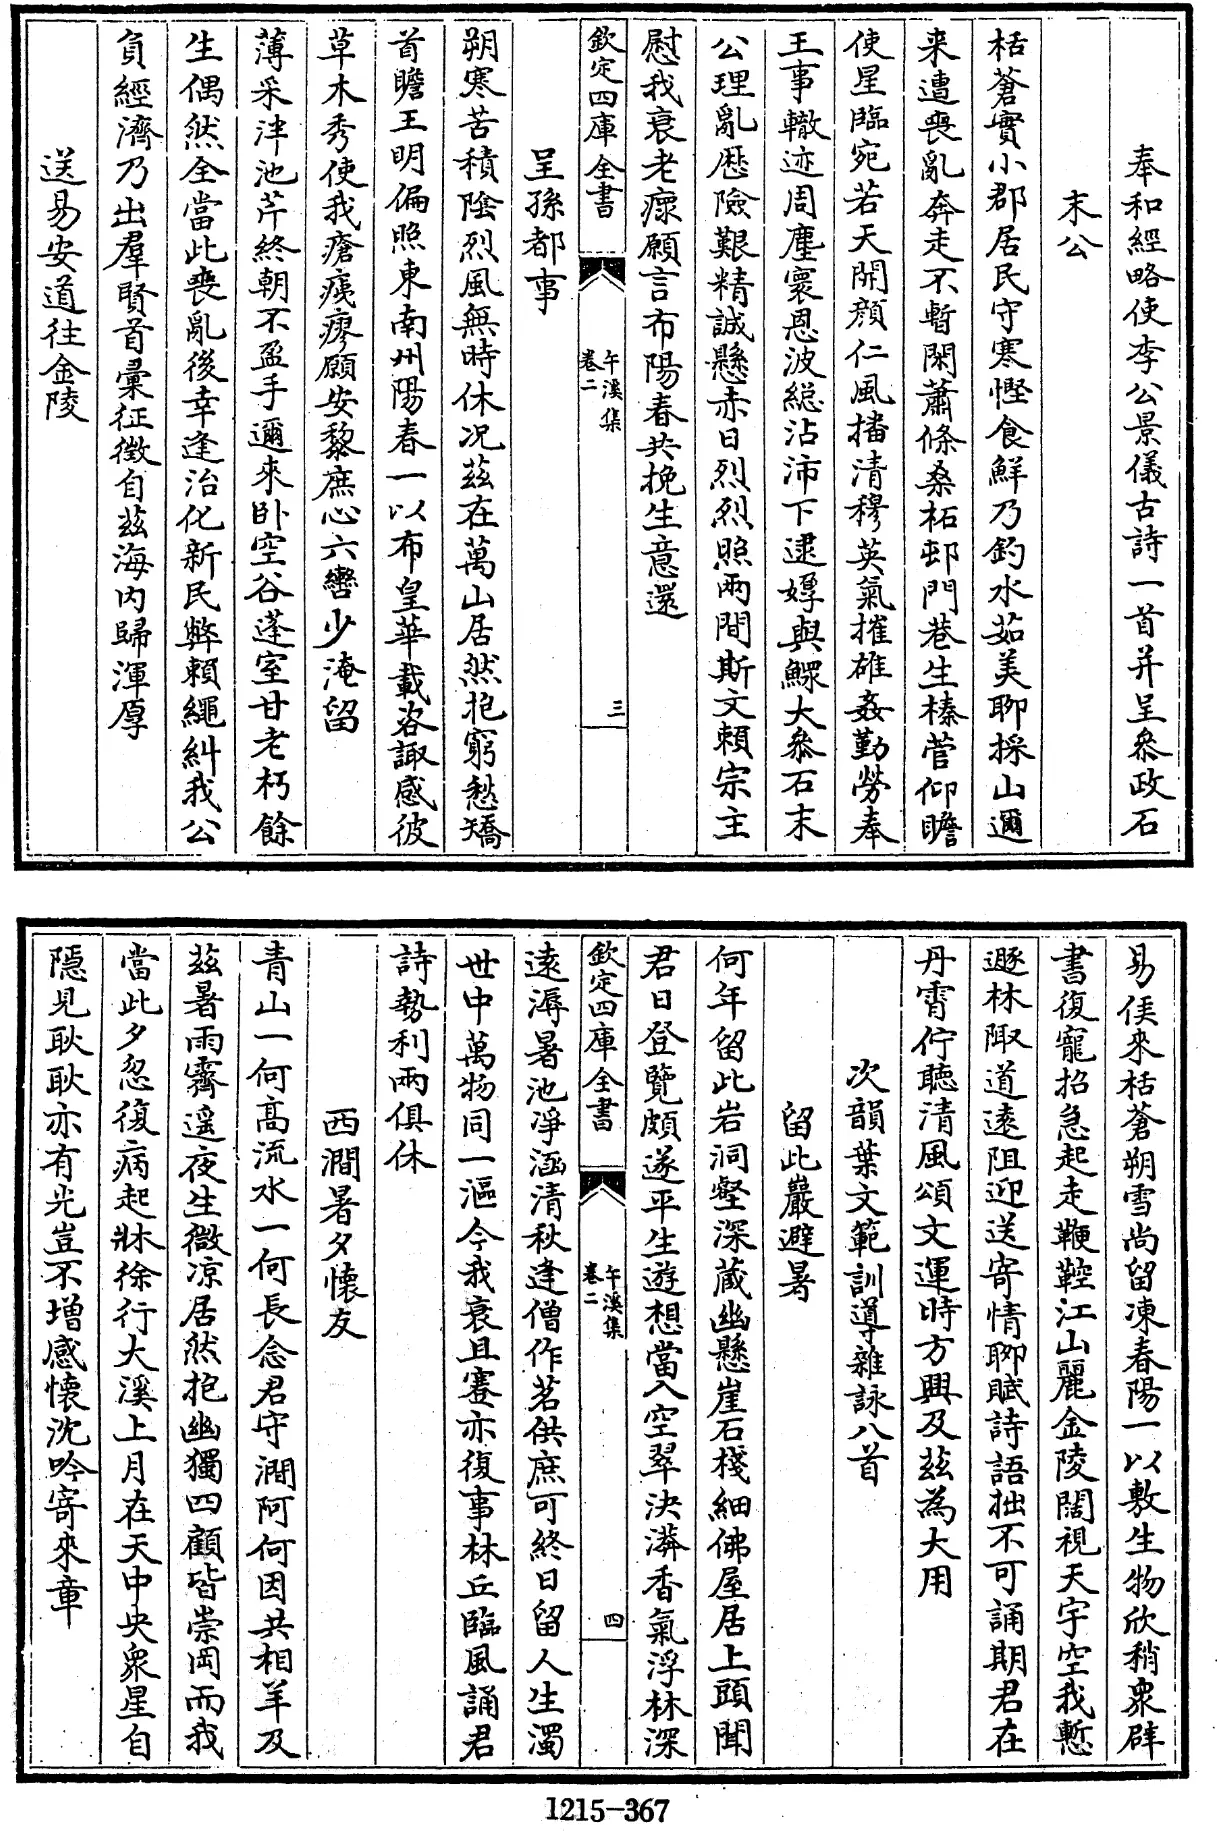 奉和經略使李公景儀古詩一首并呈叅政石
末公
栝蒼實小郡居民守寒慳食鮮乃釣水茹美聊採山邇
来遭喪亂奔走不暫閑蕭條桑柘邨門巷生榛菅仰瞻
使星臨宛若天開顔仁風播清穆英氣摧碓姦勤勞奉
王事轍迹周塵寰恩波総沾沛下逮嫠與鰥大叅石末
公理亂歷險艱精誠懸赤日烈烈照兩間斯文頼宗主
慰我衰老瘝願言布陽春共挽生意還
欽定四庫全書
午溪集
卷二
三
呈孫都事
朔寒苦積陰烈風無時休况兹在萬山居然抱窮愁矯
首瞻王明偏照東南州陽春一以布皇華載咨諏感彼
草木秀使我瘡痍瘳願安黎庶心六轡少淹留
薄采泮池芹終朝不盈手邇來卧空谷蓬室甘老朽餘
生偶然全當此喪亂後幸逢治化新民弊賴繩糾我公
負經濟乃出羣賢首彙征徵自兹海内歸渾厚
送易安道往金陵
易侯來栝蒼朔雪尚留凍春陽一以敷生物欣稍衆辟
書復寵招急起走鞭鞚江山麗金陵闊視天宇空我慙
遯林陬道遠阻迎送寄情聊賦詩語拙不可誦期君在
丹霄佇聽清風頌文運時方興及兹為大用
次韻葉文範訓導雜詠八首
留此巖避暑
何年留此岩洞壑深藏幽懸崖石棧細佛屋居上頭聞
君日登覽頗遂平生遊想當入空翠泱漭香氣浮林深
欽定四庫全書
午溪集
卷二
四
遠溽暑池淨涵清秋逢僧作茗供庶可終日留人生濁
世中萬物同一漚今我衰且蹇亦復事林丘臨風誦君
詩勢利兩俱休
西澗暑夕懷友
青山一何高流水一何長念君守澗阿何因共相羊及
兹暑雨霽遥夜生微凉居然抱幽獨四顧皆崇岡而我
當此夕忽復病起牀徐行大溪上月在天中央衆星自
隱見耿耿亦有光豈不增感懷沈吟寄來章
1215-367